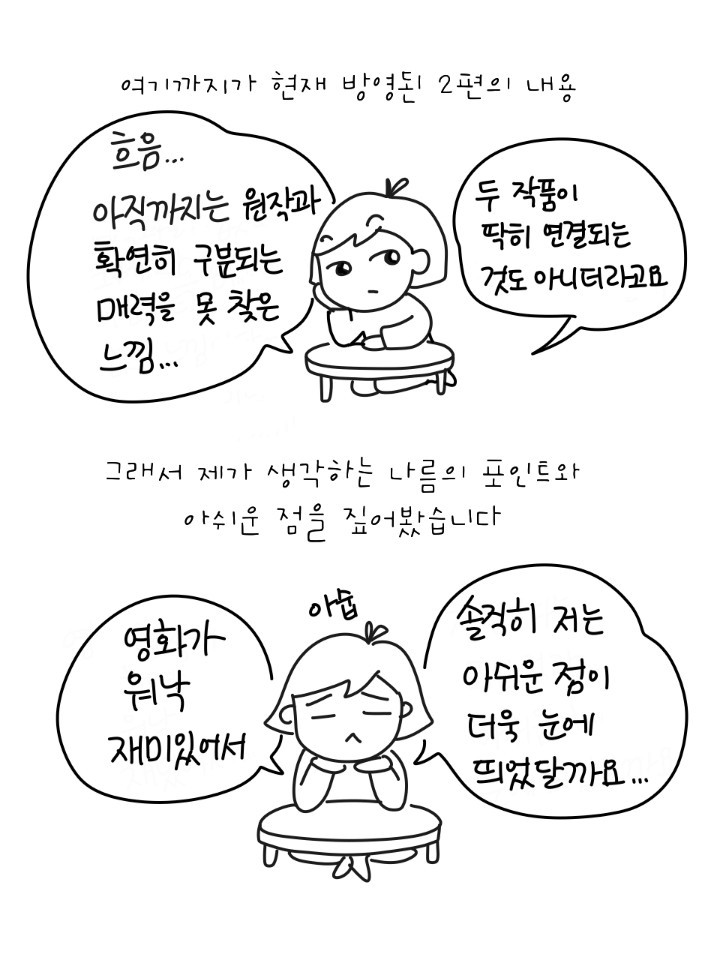 여기까지가 현재 방영된 2편의 내용
흐음...
아직까지는 원작과
확연히 구분되는
매력을 못 찾은
느낌...
두 작품이
딱히 연결되는
것도 아니더라고요
그래서 제가 생각하는 나름의 포인트와
아쉬운 점을 짚어봤습니다
아숩
영화가
워낙
재미있어서
솔직히 저는
아쉬운 점이
더욱 눈에
띄었달까요...